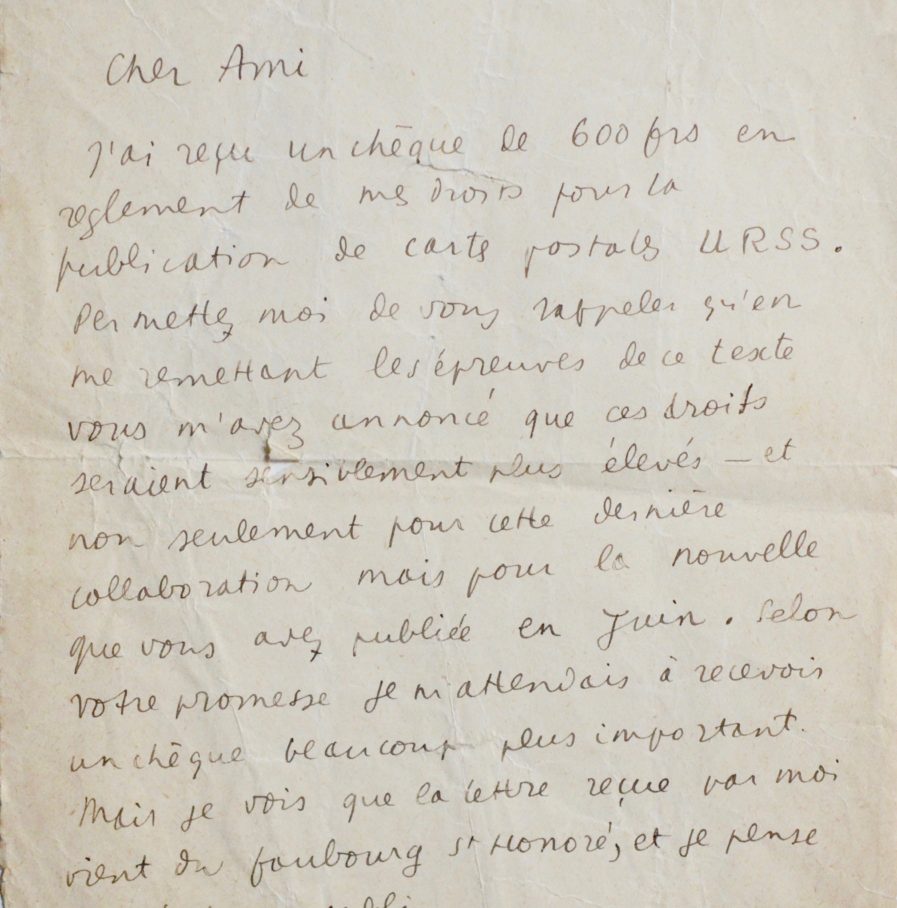 Cher Ami
J'ai reçu un chèque de 600 frs en
règlement de mes droits pour la
publication de cartes postales URSS.
Permettez moi de vous rappeler qu'en
me remettant les épreuves de ce texte
vous m'avez annoncé que ces droits
seraient sensiblement plus élevés — et
non seulement pour cette dernière
collaboration mais pour la nouvelle
que vous avez publiée en Juin. Selon
votre promesse je m'attendais à recevoir
un chèque beaucoup plus important.
Mais je vois que la lettre reçue par moi
vient du faubourg St Honoré, et je pense